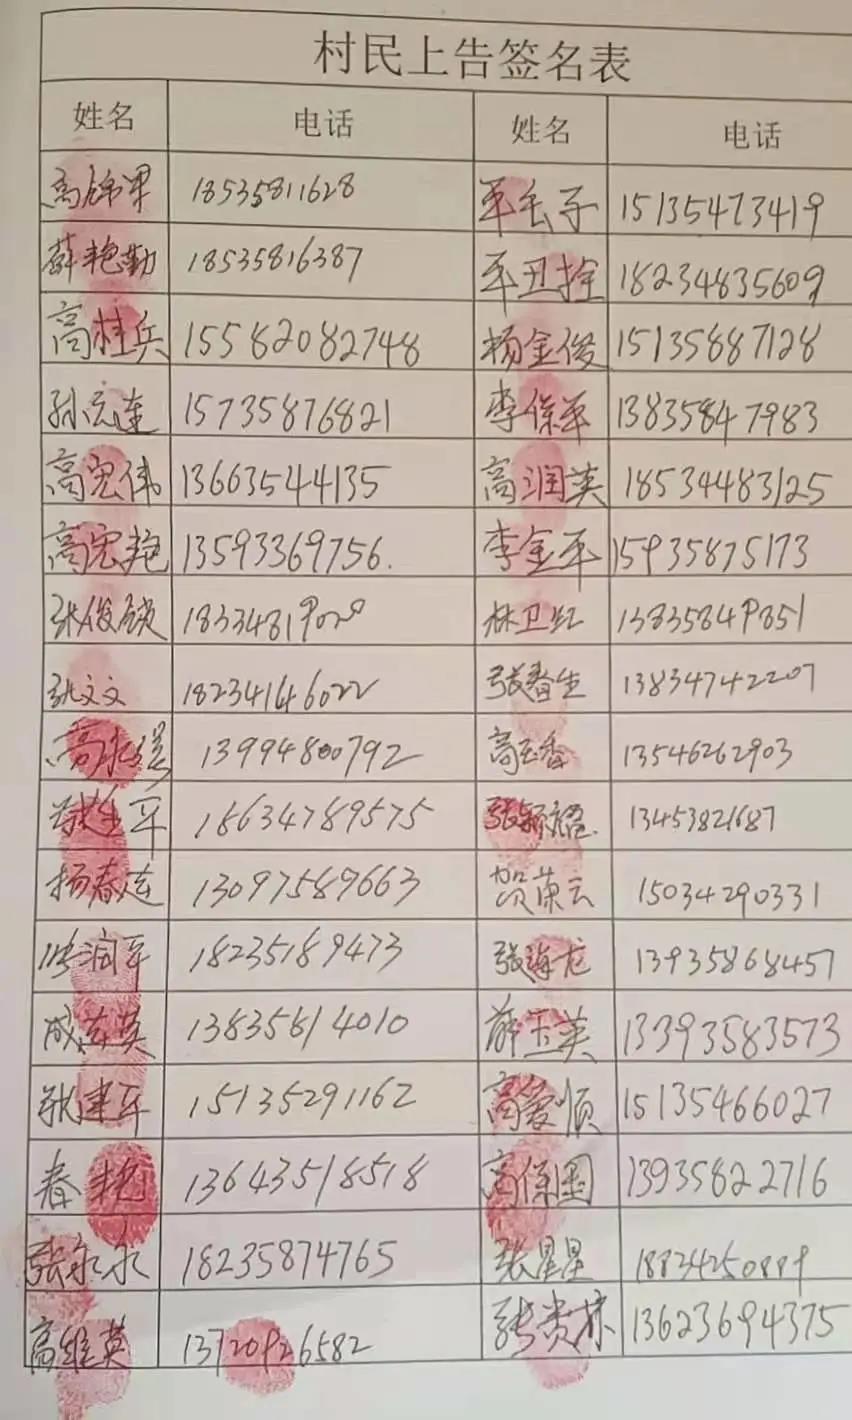 村民上告签名表
姓名 电话 姓名 电话
18535811628 平毛子 15135473419
薛艳勤 18535816387 平丑拴 18234835609
高桂兵 15582082748 杨金俊 15135887128
孙宏连 15735876821 李保平 13835847983
高宏伟 13663544135 高润英 18534483125
高宏艳 13593369756. 李金平 15935875173
张俊锁 林卫红 13835849851
张文文 18234146022 张春生 13834742207
13994800792 高玉香 13546262903
18634789575 13453821687
杨春莲 13097589663 贺荣云 15034290331
润平 18235189473 张海龙 13935868457
成莲英 13835814010 薛玉英 13393583573
张建平 15135291162 高爱顺 15135466027
春艳 13643518518 高保国 13935822716
张永永 18235874765 张星星 18834250889
高维英 13720926582 张贵 13623694375